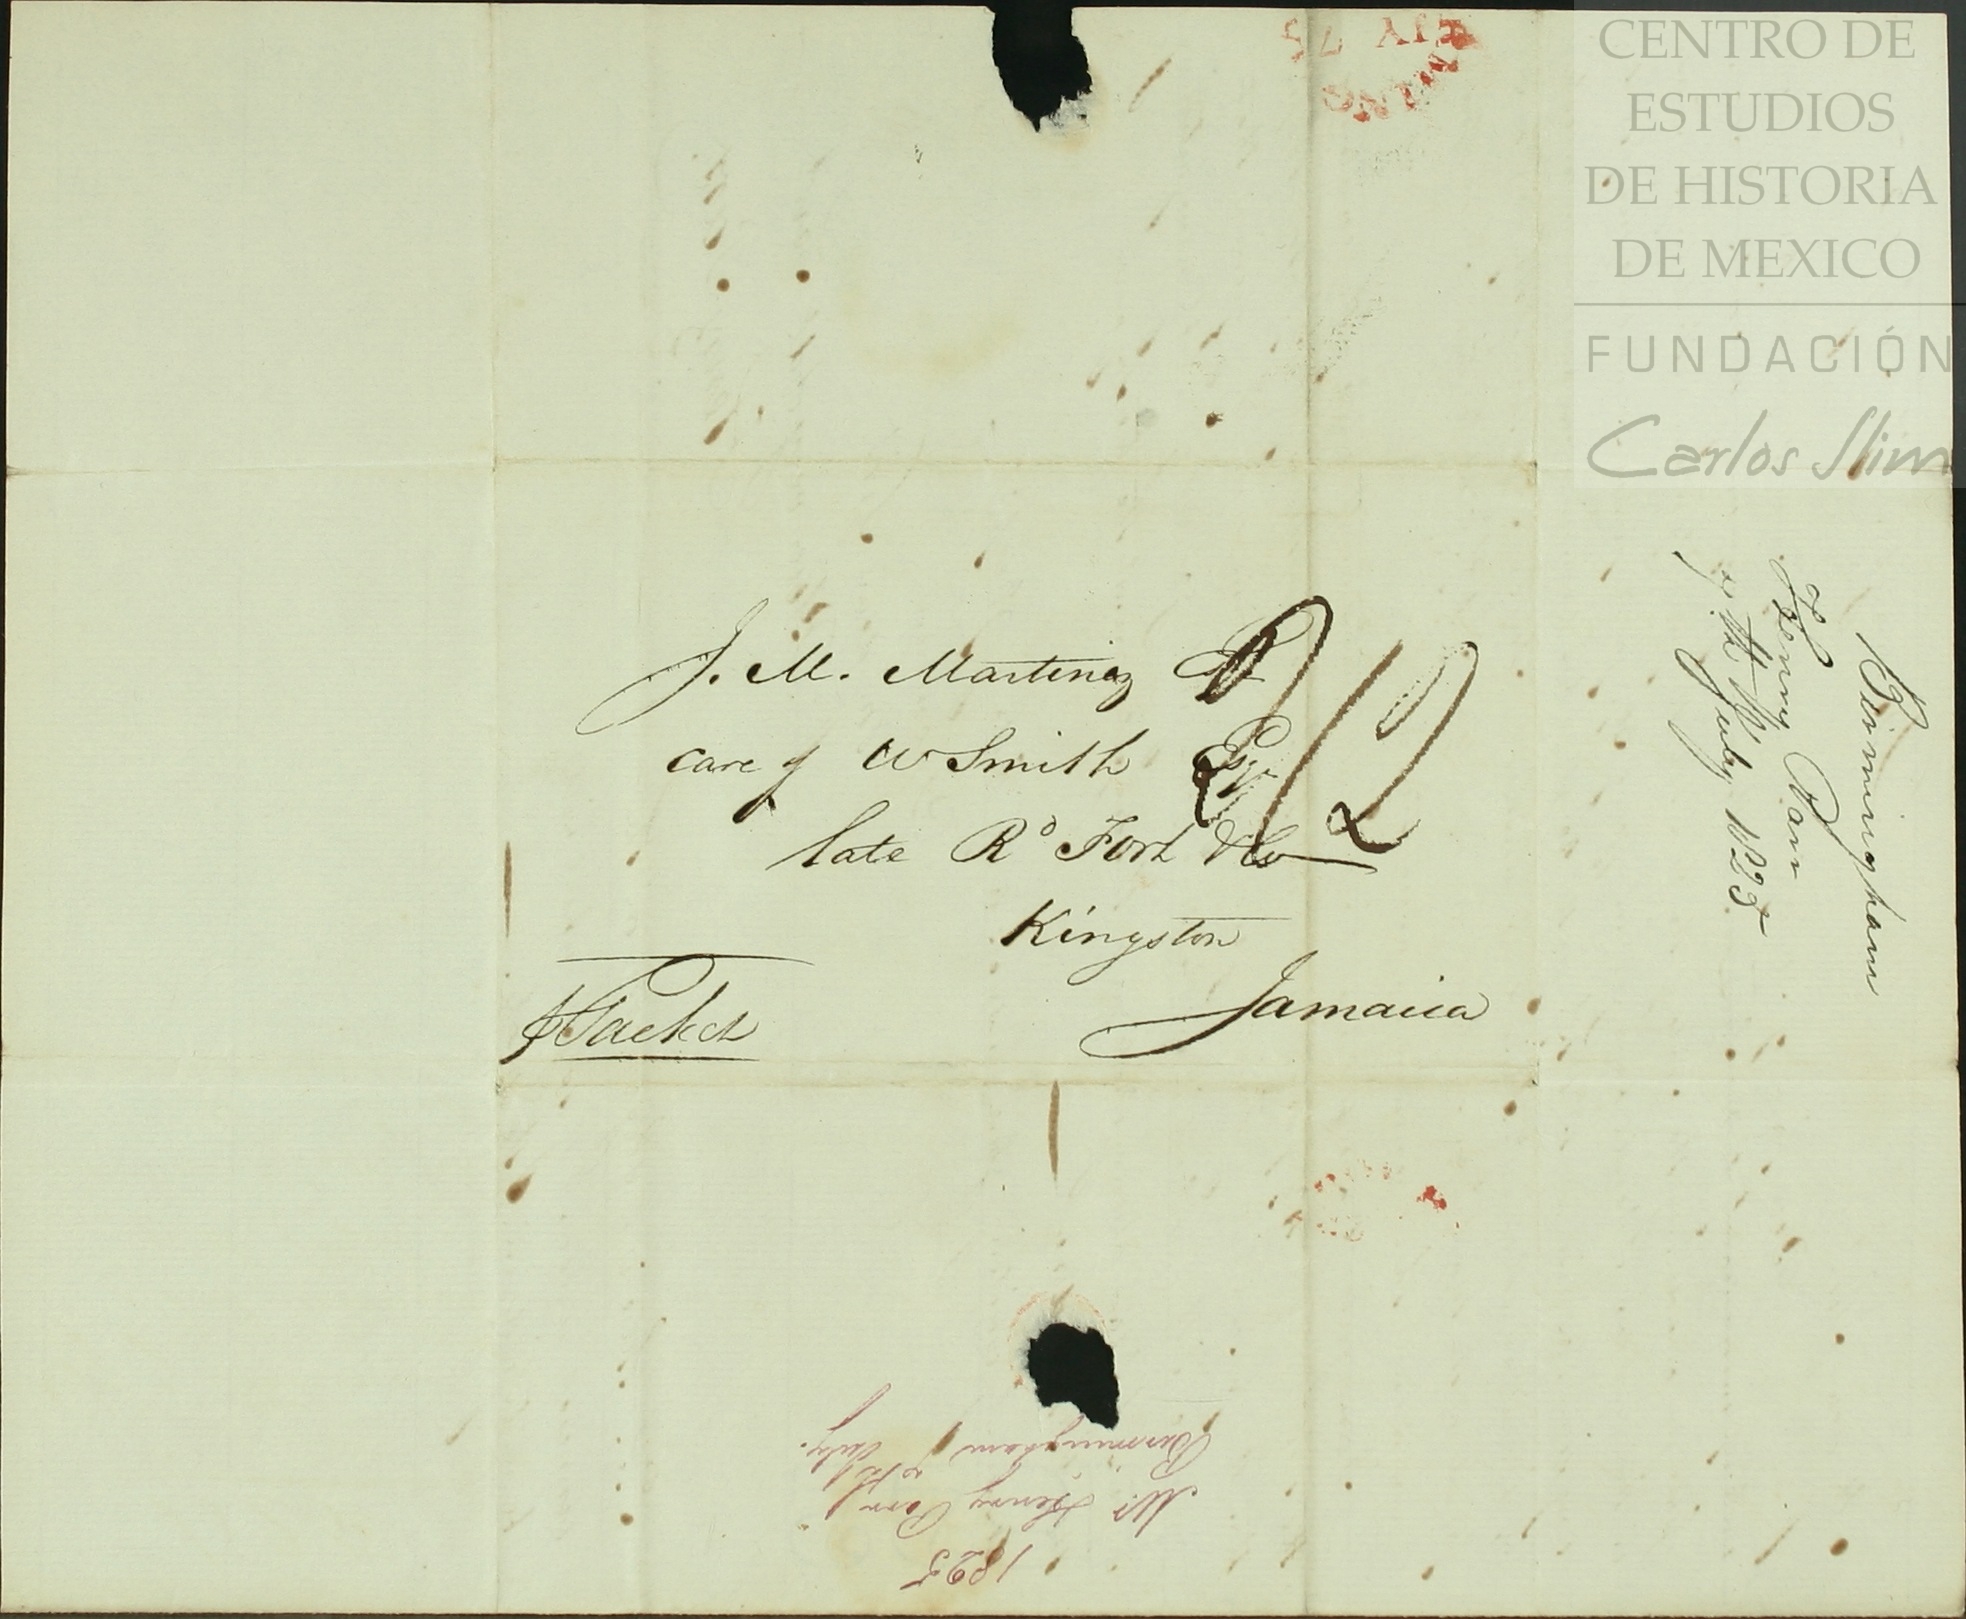 CENTRO DE
ESTUDIOS
DE HISTORIA
DE MEXICO
FUNDACIÓN
Carlos Slim
J. M. Martinez
care of W Smith Esq
late Rd Fort & Co
Kingston
Jamaica
Packet
2/2
Birmingham
Henry
July 1825
1825
Mr Henry
Birmingham July